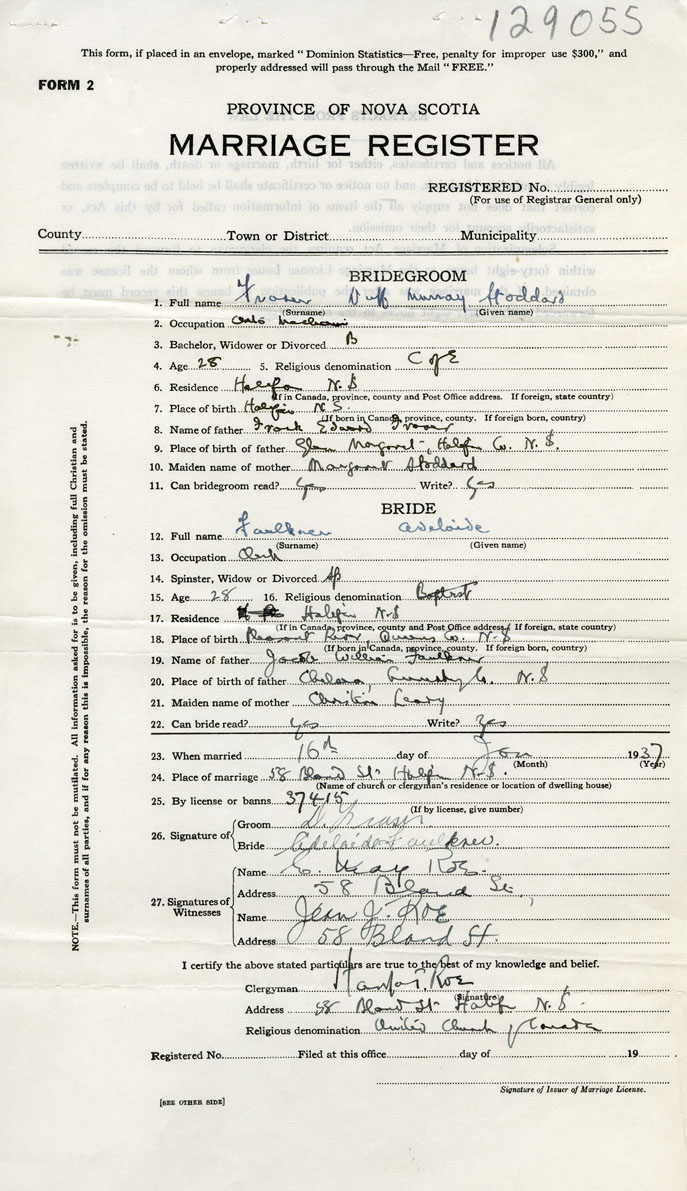 129055
This form, if placed in an envelope, marked "Dominion Statistics—Free, penalty for improper use $300," and
properly addressed will pass through the Mail "FREE."
FORM 2
PROVINCE OF NOVA SCOTIA
MARRIAGE REGISTER
REGISTERED No.
(For use of Registrar General only)
County Town or District Municipality
BRIDEGROOM
1. Full name Fraser Duff Murray Stoddard
(Surname) (Given name)
2. Occupation Auto Mechanic
3. Bachelor, Widower or Divorced B
4. Age 28 5. Religious denomination C of E
6. Residence Halifax N.S
(If in Canada, province, county and Post Office address. If foreign, state country)
7. Place of birth Halifax N.S.
(If born in Canada, province, county. If foreign born, country)
8. Name of father Frank Edward Fraser
9. Place of birth of father Glen Margaret, Halifax Co. N.S.
10. Maiden name of mother Margaret Stoddard
11. Can bridegroom read? Yes Write? Yes
BRIDE
12. Full name Faulkner Adelaide
(Surname) (Given name)
13. Occupation Clerk
14. Spinster, Widow or Divorced Sp
15. Age 28 16. Religious denomination Baptist
17. Residence Halifax N.S
(If in Canada, province, county and Post Office address. If foreign, state country)
18. Place of birth Pleasant River, Queens Co. N.S
(If born in Canada, province, county. If foreign born, country)
19. Name of father Jacob William Faulkner
20. Place of birth of father Chelsea, Co. N.S
21. Maiden name of mother Christina Leary
22. Can bride read? yes Write? Yes
23. When married 16th day of Jan 1937
(Month) (Year)
24. Place of marriage 58 Bland St. Halifax N.S.
(Name of church or clergyman's residence or location of dwelling house)
25. By license or banns 37415
(If by license, give number)
26. Signature of Groom D. Fraser
Bride Adelaide Faulkner.
27. Signatures of Witnesses
Name E. May Roe.
Address 58 Bland St.
Name Jean J. Roe
Address 58 Bland St.
I certify the above stated particulars are true to the best of my knowledge and belief.
Clergyman Roe
(Signature)
Address 58 Bland St Halifax N.S.
Religious denomination United Church of Canada
Registered No. Filed at this office day of 19
Signature of Issuer of Marriage License.
[SEE OTHER SIDE]
NOTE.—This form must not be mutilated. All information asked for is to be given, including full Christian and
surnames of all parties, and if for any reason this is impossible, the reason for the omission must be stated.